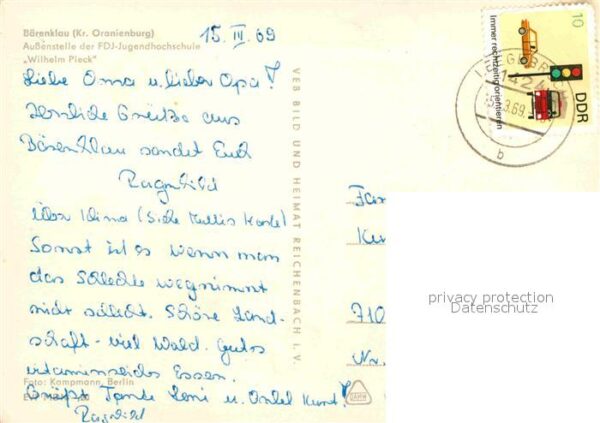 Bärenklau (Kr. Oranienburg)
Außenstelle der FDJ-Jugendhochschule
„Wilhelm Pieck“
15. III. 69
Liebe Oma u. lieber Opa!
Herzliche Grüße aus
Bärenklau sendet Euch
Ragnhild
Über Klima (Siehe Muttis Karte)
Sonst ist es wenn man
das Schlechte wegnimmt
nicht schlecht. Schöne Land-
schaft - viel Wald. Gutes
vitaminreiches Essen.
Foto: Kampmann, Berlin
Grüßt Tante Leni u. Onkel Kurt!
Ragnhild
VEB BILD UND HEIMAT REICHENBACH I. V.
10
Immer rechtzeitig orientieren
DDR
142
3.69.
b
710
Nr.
privacy protection
Datenschutz